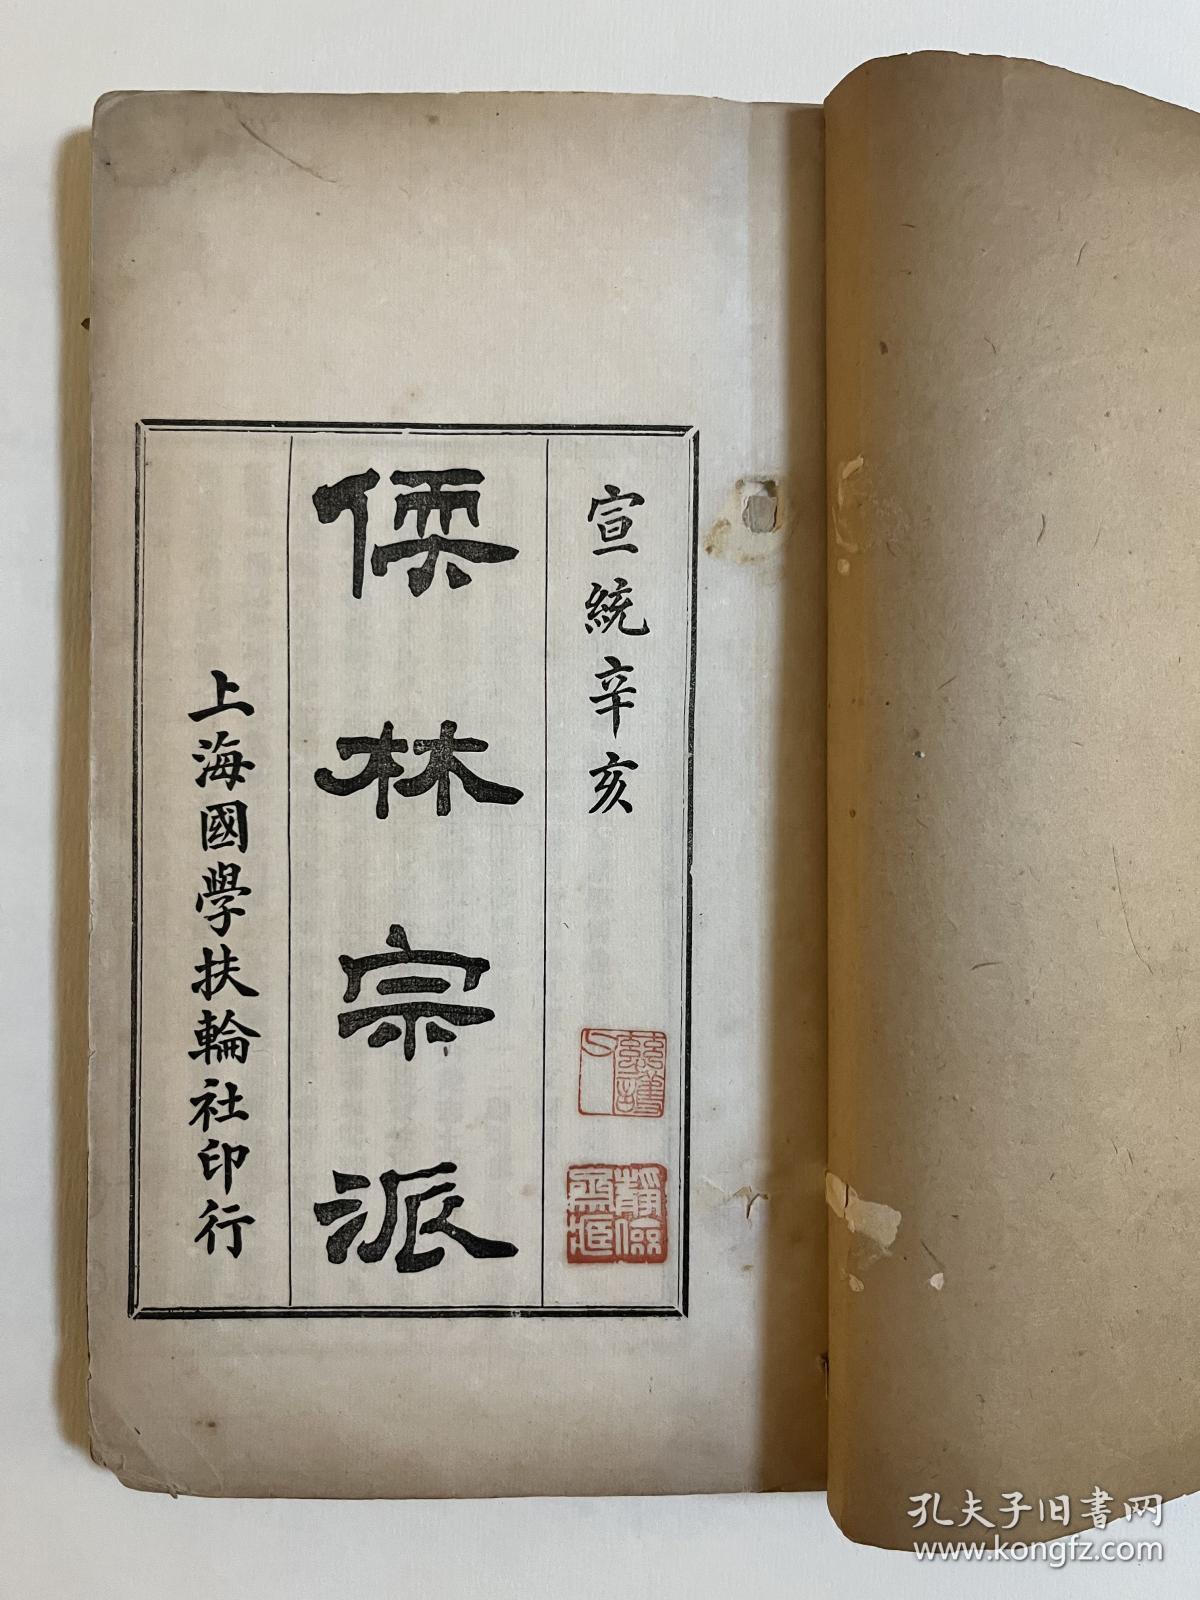 宣統辛亥
儒林宗派
上海國學扶輪社印行
孔夫子旧书网
www.kongfz.com